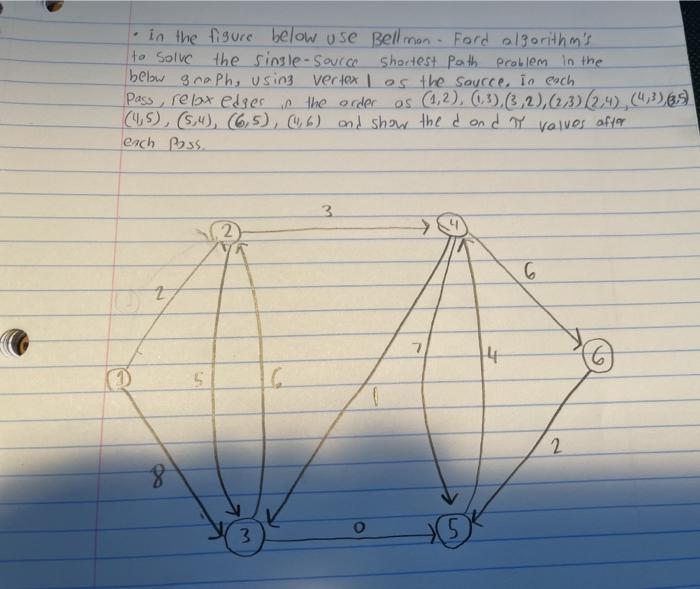 • in the figure below use Bellman - Ford algorithm's
to solve the single-source shortest path problem in the
below graph, using vertex 1 as the source. in each
Pass, relax edges in the order as (1,2), (1,3), (3,2), (2,3) (2,4), (4,3), (3,5)
(4,5), (5,4), (6,5), (4,6) and show the d and π values after
each Pass.
3
2 4
6
2
7 4 6
1 5 6
1
8 2
0
3 5